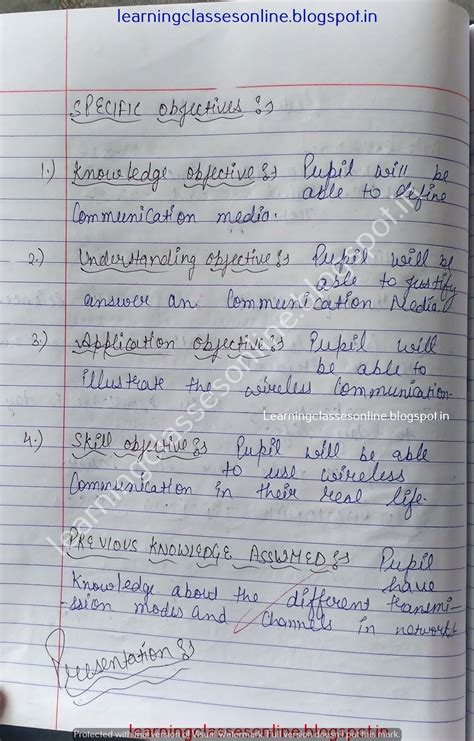 learningclassesonline.blogspot.in
SPECIFIC Objectives :-
1.) Knowledge objective :- Pupil will be
able to define
Communication media.
2.) Understanding objective :- Pupil will be
able to justify
answer an Communication Media.
3.) Application objective :- Pupil will
be able to
illustrate the wireless Communication.
Learningclassesonline.blogspot.in
4.) Skill objective :- Pupil will be able
to use wireless
Communication in their real life.
learningclassesonline.blogspot.in
PREVIOUS KNOWLEDGE ASSUMED :- Pupil
have
Knowledge about the different transmi-
-ssion modes and Channels in network
Presentation :-
Protected with trial version of Visual Watermark. Full version doesn't put this mark.
learningclassesonline.blogspot.in